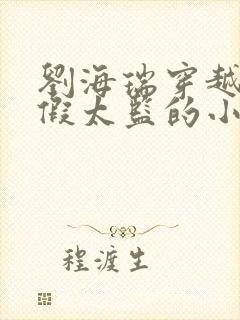 劉海瑞穿越
假太監的小
程渡生